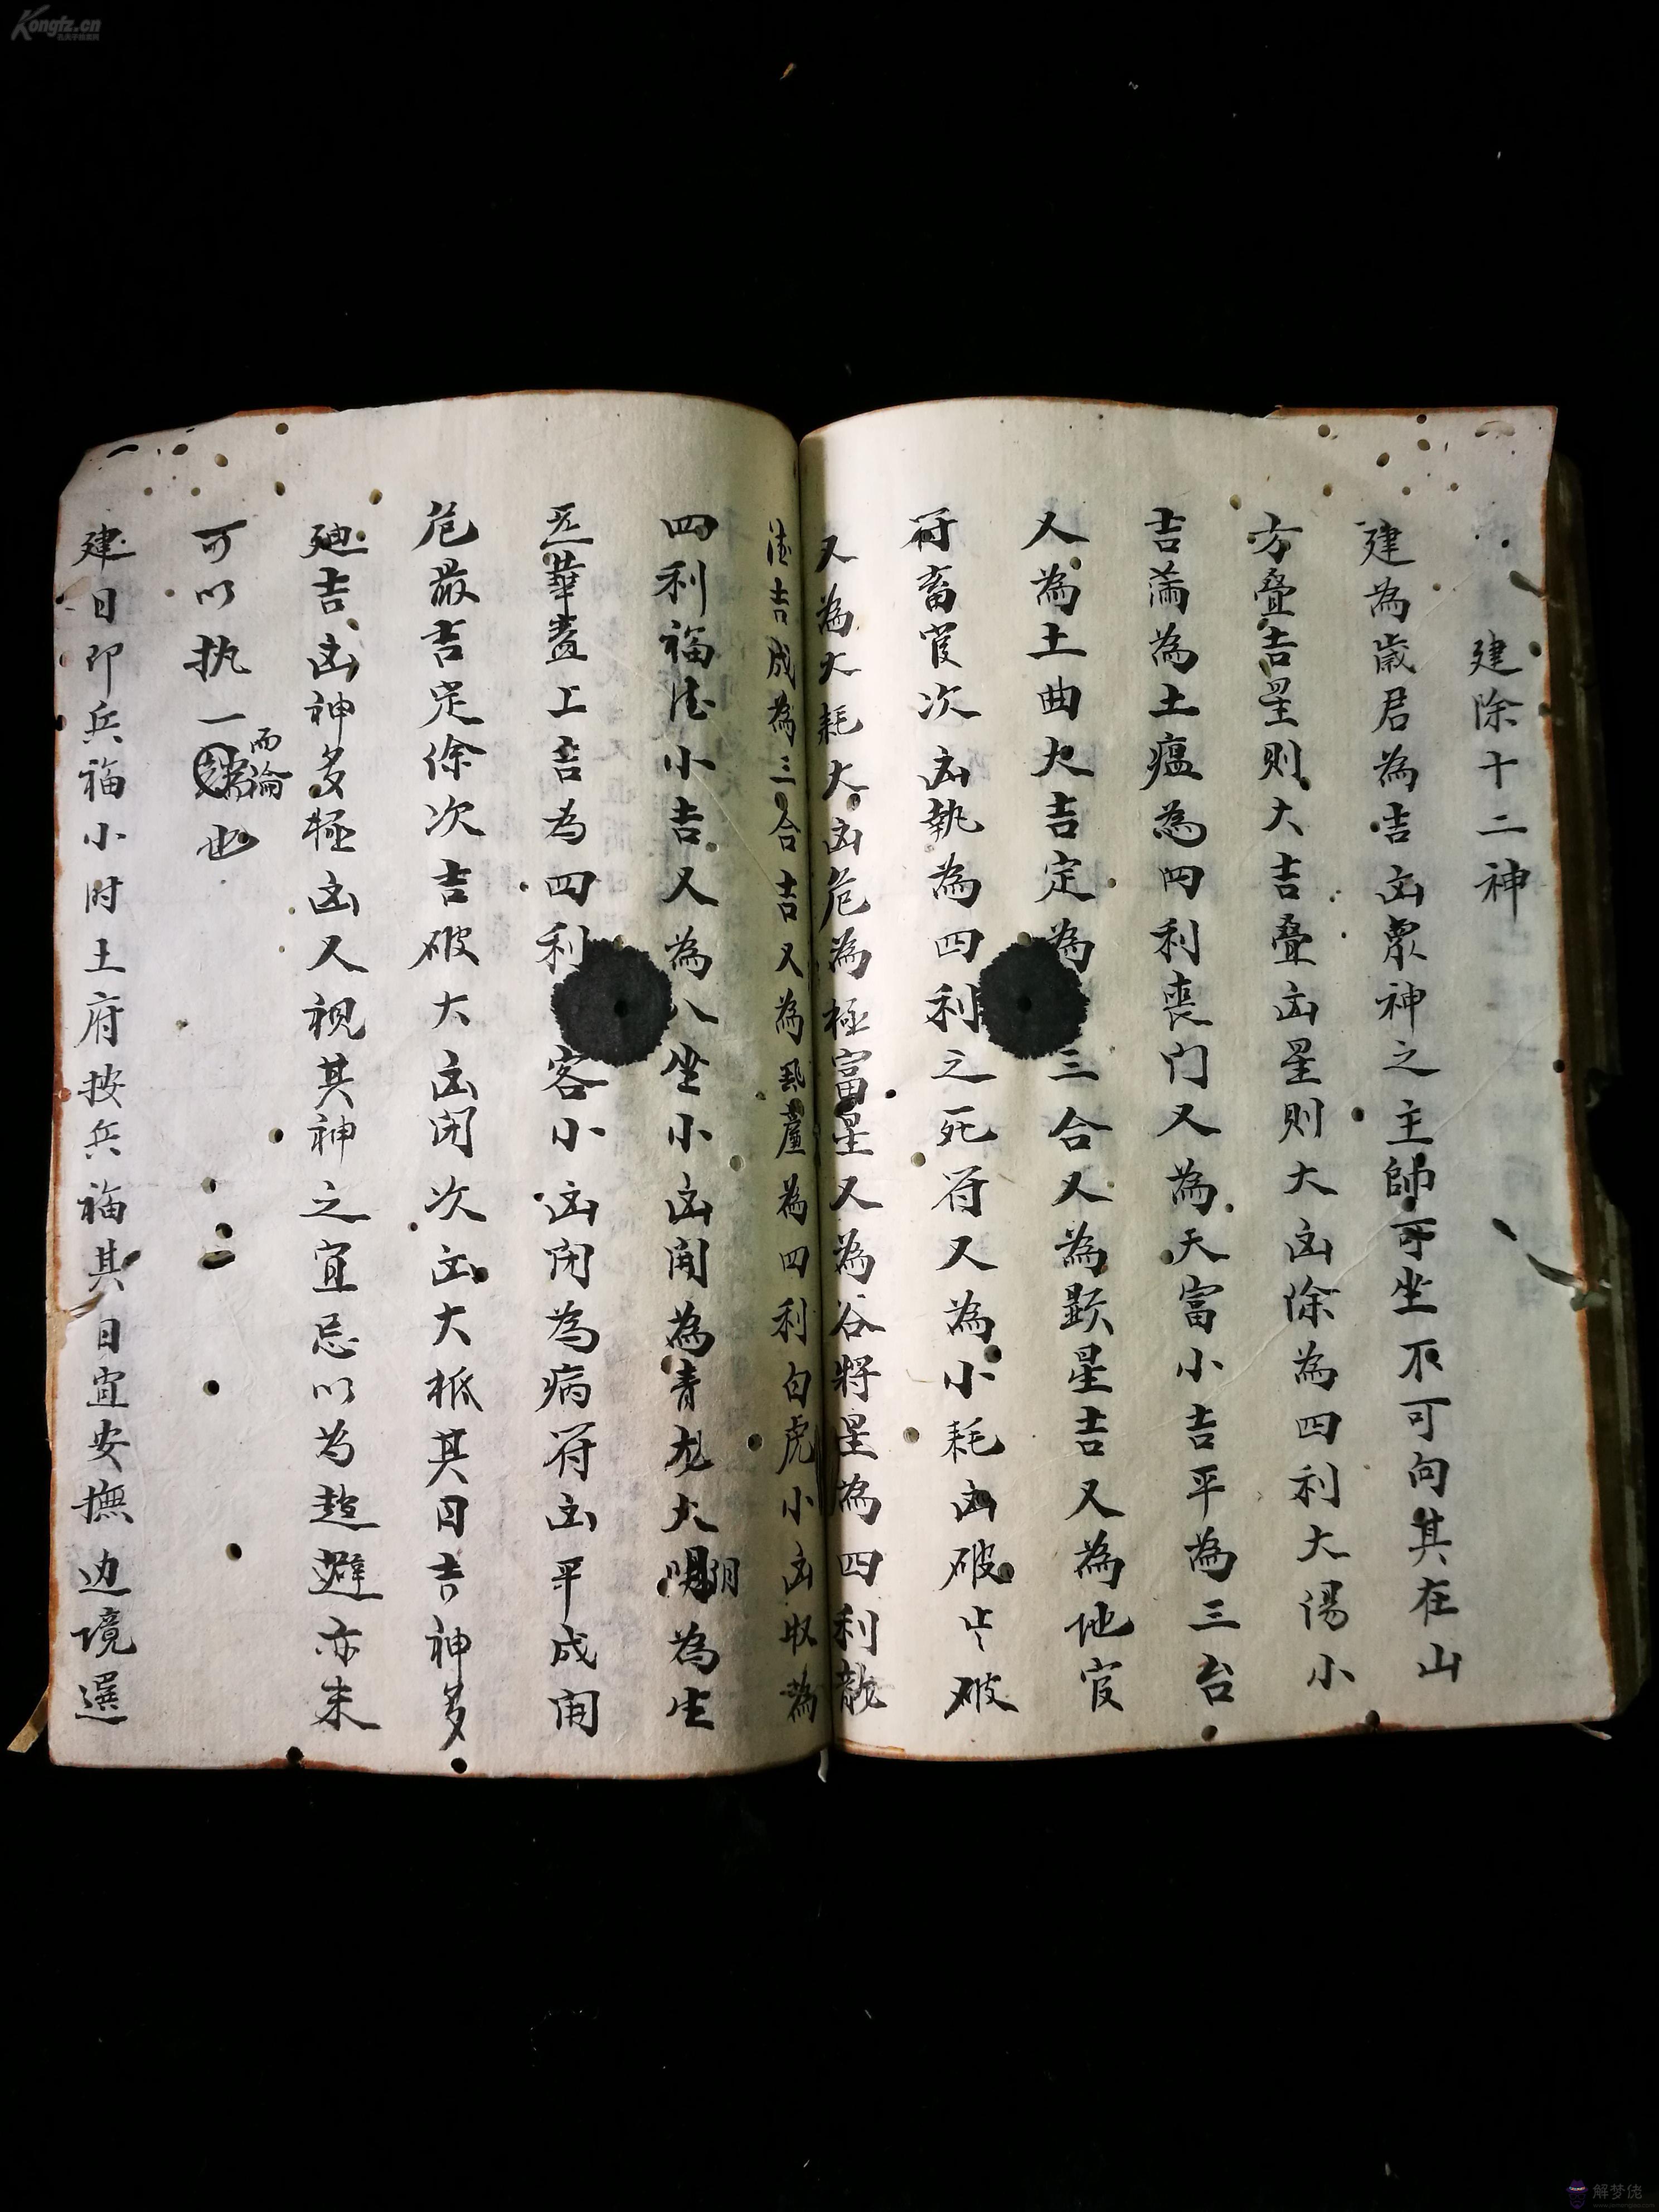 建除十二神
建為歲君為吉凶衆神之主帥可坐不可向其在山
方疊吉星則大吉疊凶星則大凶除為四利大陽小
吉滿為土瘟為四利喪门又為天富小吉平為三台
又為土曲大吉定為三合又為顕星吉又為地官
符畜官次凶執為四利之死符又為小耗凶破歩破
又為大耗大凶危為極富星又為谷將星為四利龍
徳吉成為三合吉又為為四利白虎小凶收為
四利福徳小吉又為八坐小凶開為青龙大陽为生
炁華蓋上吉为四利客小凶闭為病符凶平成開
危最吉定除次吉破大凶闭次凶大柢其日吉神多
廸吉凶神多極凶又视其神之宜忌以为趋避亦未
可以执一而論也
建日即兵福小时土府按兵福其日宜安撫边境選
Kongfz.cn
孔夫子旧书网
解梦佬